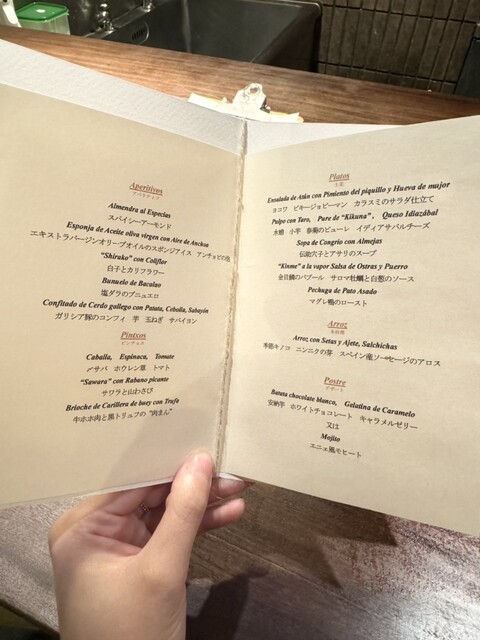 Aperitivos
アペリティフ
Almendra al Especias
スパイシーアーモンド
Esponja de Aceite oliva virgen con Aire de Anchoa
エキストラバージンオリーブオイルのスポンジアイス アンチョビの泡
"Shirako" con Coliflor
白子とカリフラワー
Bunuelo de Bacalao
塩ダラのブニュエロ
Confitado de Cerdo gallego con Patata, Cebolla, Sabayin
ガリシア豚のコンフィ 芋 玉ねぎ サバイヨン
Pintxos
ピンチョス
Caballa, Espinaca, Tomate
〆サバ ホウレン草 トマト
"Sawara" con Rabano picante
サワラと山わさび
Brioche de Carillera de buey con Trufa
牛ホホ肉と黒トリュフの "肉まん"
Platos
主菜
Ensalada de Atún con Pimiento del piquillo y Hueva de mujor
ヨコワ ピキージョピーマン カラスミのサラダ仕立て
Pulpo con Taro, Pure de "Kikuna", Queso Idiazábal
水蛸 小芋 春菊のピューレ イディアサバルチーズ
Sopa de Congrio con Almejas
伝助穴子とアサリのスープ
"Kinme" a la vapor Salsa de Ostras y Puerro
金目鯛のバプール サロマ牡蠣と白葱のソース
Pechuga de Pato Asado
マグレ鴨のロースト
Arroz
米料理
Arroz con Setas y Ajete, Salchichas
季節キノコ ニンニクの芽 スペイン産ソーセージのアロス
Postre
デザート
Batata chocolate blanco, Gelatina de Caramelo
安納芋 ホワイトチョコレート キャラメルゼリー
又は
Mojito
エニェ風モヒート